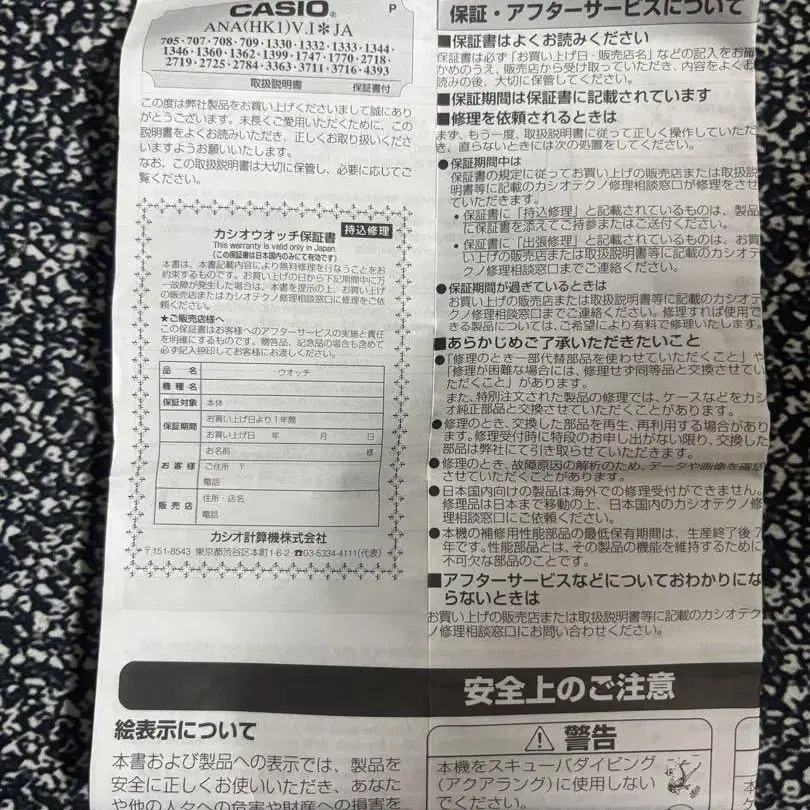 CASIO®
P
ANA(HK1)V.1＊JA
705・707・708・709・1330・1332・1333・1344・
1346・1360・1362・1399・1747・1770・2718・
2719・2725・2784・3363・3711・3716・4393
取扱説明書
保証書付
この度は弊社製品をお買い上げくださいまして誠にあり
がとうございます。末長くご愛用いただくために、この
説明書をよくお読みいただき、正しくお取り扱いください
ますようお願いいたします。
なお、この取扱説明書は大切に保管し、必要に応じてご
覧ください。
カシオウオッチ保証書
持込修理
This warranty is valid only in Japan.
(この保証書は日本国内のみにて有効です)
本書は、本書記載内容により無料修理を行なうことをお
約束するものです。お買い上げの日から下記期間中に万
一故障が発生した場合は、本書を提示の上、お買い上げ
の販売店またはカシオテクノ修理相談窓口に修理をご依
頼ください。
★ご販売店様へ
この保証書はお客様へのアフターサービスの実施と責任
を明確にするものです。贈答品、記念品の場合も含めて
必ず記入捺印してお客様にお渡しください。
品 名 ウオッチ
機 種 名
保証対象 本体
保証期間 お買い上げ日より1年間
お買い上げ日 年 月 日
お 客 様 お名前 様
ご住所 〒
電話
販 売 店 住所・店名
電話
カシオ計算機株式会社
〒151-8543 東京都渋谷区本町1-6-2 ☎03-5334-4111(代表)
保証・アフターサービスについて
■保証書はよくお読みください
保証書は必ず「お買い上げ日・販売店名」などの記入をお確
かめのうえ、販売店から受け取っていただき、内容をよくお
読みの後、大切に保管してください。
■保証期間は保証書に記載されています
■修理を依頼されるときは
まず、もう一度、取扱説明書に従って正しく操作していただ
き、直らないときには次の処置をしてください。
●保証期間中は
保証書の規定に従ってお買い上げの販売店または取扱説
明書等に記載のカシオテクノ修理相談窓口が修理をさせ
ていただきます。
・保証書に「持込修理」と記載されているものは、製品
に保証書を添えてご持参またはご送付ください。
・保証書に「出張修理」と記載されているものは、お買
い上げの販売店または取扱説明書等に記載のカシオテ
クノ修理相談窓口までご連絡ください。
●保証期間が過ぎているときは
お買い上げの販売店または取扱説明書等に記載のカシオテ
クノ修理相談窓口までご連絡ください。修理すれば使用で
きる製品については、ご希望により有料で修理いたします。
■あらかじめご了承いただきたいこと
●「修理のとき一部代替部品を使わせていただくこと」や
「修理が困難な場合には、修理せず同等品と交換させてい
ただくこと」があります。
また、特別注文された製品の修理では、ケースなどをカシ
オ純正部品と交換させていただくことがあります。
●修理のとき、交換した部品を再生、再利用する場合があり
ます。修理受付時に特段のお申し出がない限り、交換した
部品は弊社にて引き取らせていただきます。
●修理のとき、故障原因の解析のため、データや画像を確認
させていただくことがあります。
●日本国内向けの製品は海外での修理受付ができません。
修理品は日本まで移動の上、日本国内のカシオテクノ修
理相談窓口にご依頼ください。
●本機の補修用性能部品の最低保有期間は、生産終了後7
年です。性能部品とは、その製品の機能を維持するために
不可欠な部品のことです。
■アフターサービスなどについておわかりにな
らないときは
お買い上げの販売店または取扱説明書等に記載のカシオテク
ノ修理相談窓口にお問い合わせください。
安全上のご注意
絵表示について
本書および製品への表示では、製品を
安全に正しくお使いいただき、あなた
や他の人々への危害や財産への損害を
警告
本機をスキューバダイビング
(アクアラング)に使用しない
でください。